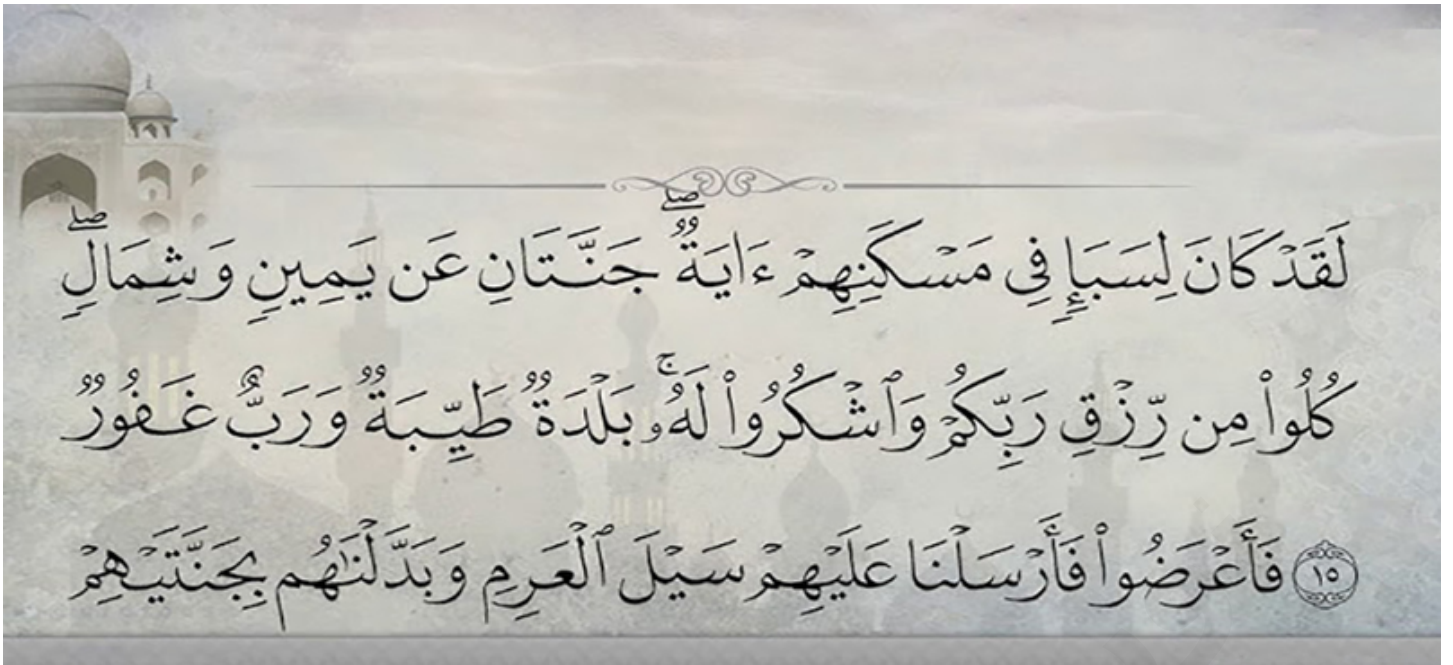 لَقَدْ كَانَ لِسَبَإٍ فِي مَسْكَنِهِمْ ءَايَةٌ ۖ جَنَّتَانِ عَن يَمِينٍ وَشِمَالٍ ۖ
كُلُوا۟ مِن رِّزْقِ رَبِّكُمْ وَٱشْكُرُوا۟ لَهُۥ ۚ بَلْدَةٌ طَيِّبَةٌ وَرَبٌّ غَفُورٌ
١٥ فَأَعْرَضُوا۟ فَأَرْسَلْنَا عَلَيْهِمْ سَيْلَ ٱلْعَرِمِ وَبَدَّلْنَٰهُم بِجَنَّتَيْهِمْ